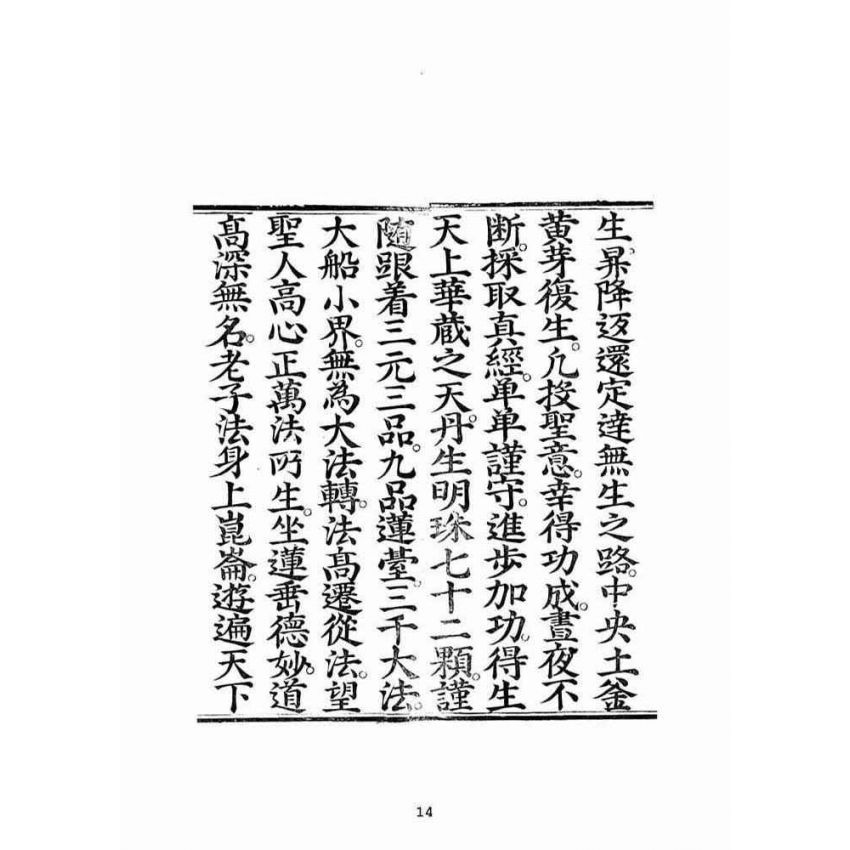 生。昇降返還定達無生之路。中央土釜
黄芽復生。凢投聖意。幸得功成。晝夜不
断。採取真經。单单謹守。進歩加功。得生
天上華蔵之天。丹生明珠七十二顆。謹
随跟着三元三品。九品蓮臺。三千大法。
大船小界。無為大法轉。法髙遷從法。望
聖人高心正萬法所生。坐蓮垂德妙。道
髙深無名。老子法身上崑崙。遊遍天下
14